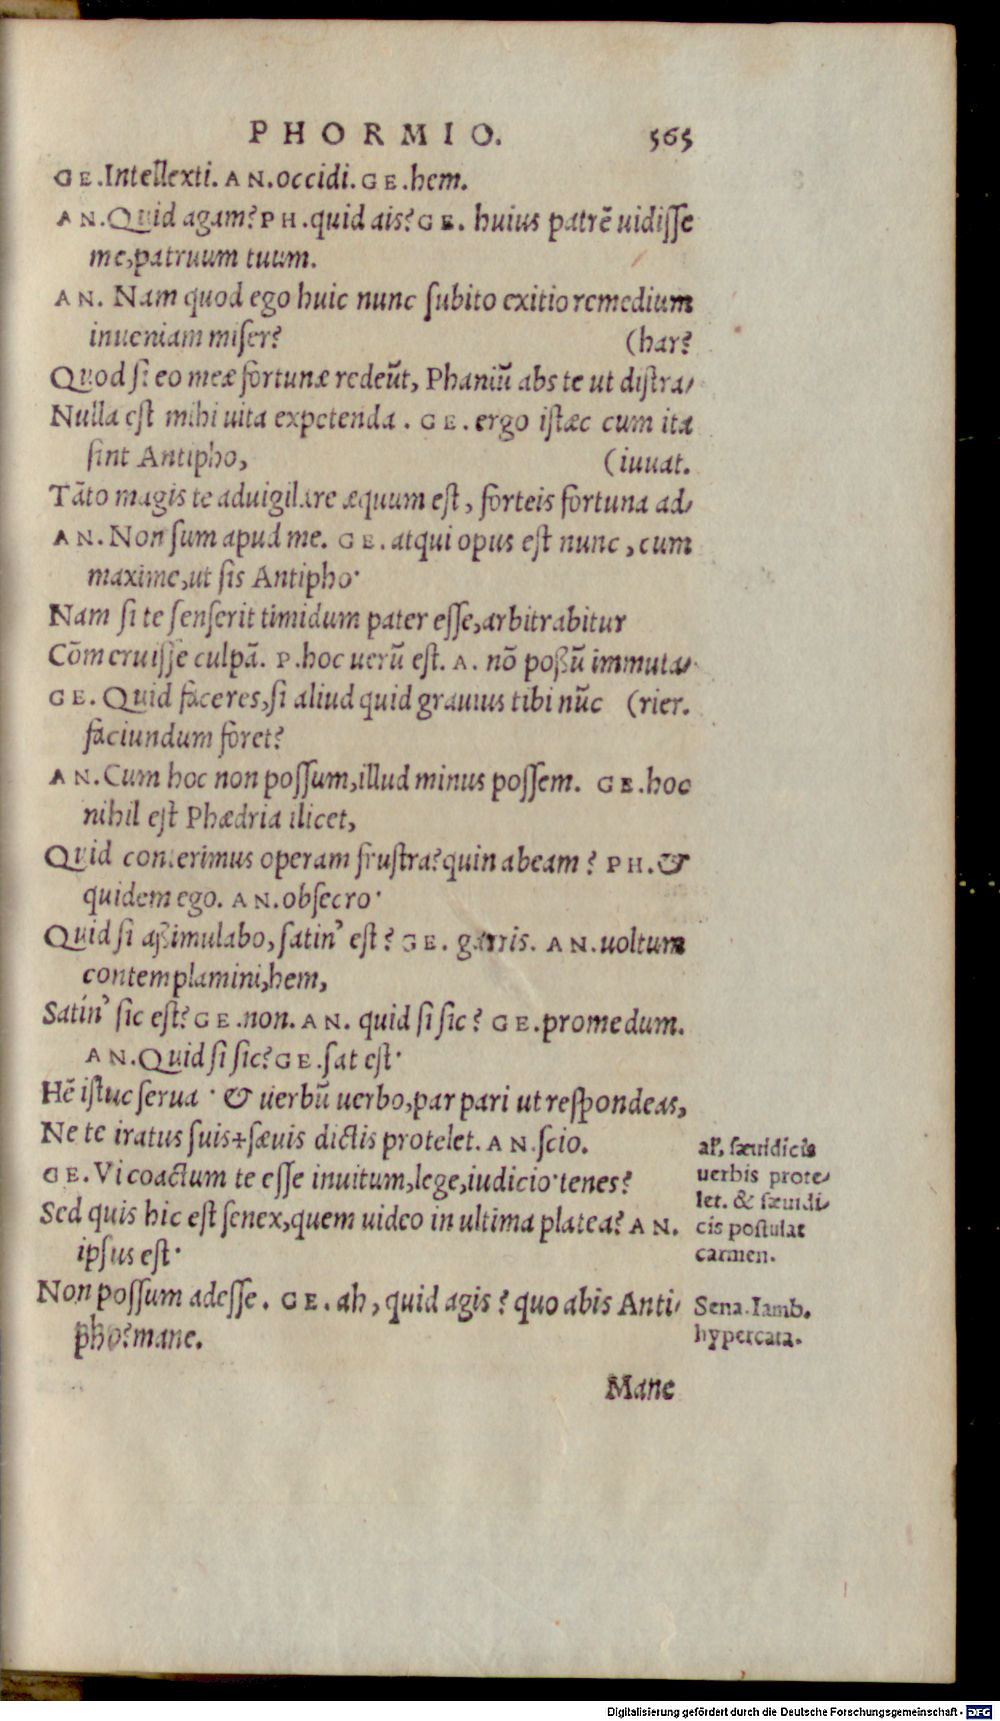 PHORMIO. 565
GE.Intellexti. AN.occidi. GE.hem.
AN.Quid agam? PH.quid ais? GE. huius patrē uidisse
me,patruum tuum.
AN. Nam quod ego huic nunc subito exitio remedium
inueniam miser? (har?
Quod si eo meæ fortunæ redeūt, Phaniū abs te ut distra/
Nulla est mihi uita expetenda . GE. ergo istæc cum ita
sint Antipho, (iuuat.
Tāto magis te aduigilare æquum est, forteis fortuna ad/
AN. Non sum apud me. GE. atqui opus est nunc, cum
maxime,ut sis Antipho·
Nam si te senserit timidum pater esse,arbitrabitur
Cōmeruisse culpā. P.hoc uerū est. A. nō poßū immuta/
GE. Quid faceres,si aliud quid grauius tibi nūc (rier.
faciundum foret?
AN.Cum hoc non possum,illud minus possem. GE.hoc
nihil est Phædria ilicet,
Quid conterimus operam frustra?quin abeam? PH.&
quidem ego. AN.obsecro·
Quid si aßimulabo, satin' est? GE. garris. AN.uoltum
contemplamini,hem,
Satin' sic est? GE.non. AN. quid si sic? GE.promedum.
AN.Quid si sic? GE.sat est·
Hē istuc serua · & uerbū uerbo,par pari ut respondeas,
Ne te iratus suis+sæuis dictis protelet. AN.scio.
al', sæuidicis
GE. Vi coactum te esse inuitum,lege,iudicio·tenes?
uerbis prote/
let. & sæuidi/
Sed quis hic est senex,quem uideo in ultima platea? AN.
cis postulat
ipsus est·
carmen.
Non possum adesse. GE. ah, quid agis? quo abis Anti/
Sena.Iamb.
pho?mane.
hypercata.
Mane
Digitalisierung gefördert durch die Deutsche Forschungsgemeinschaft - DFG